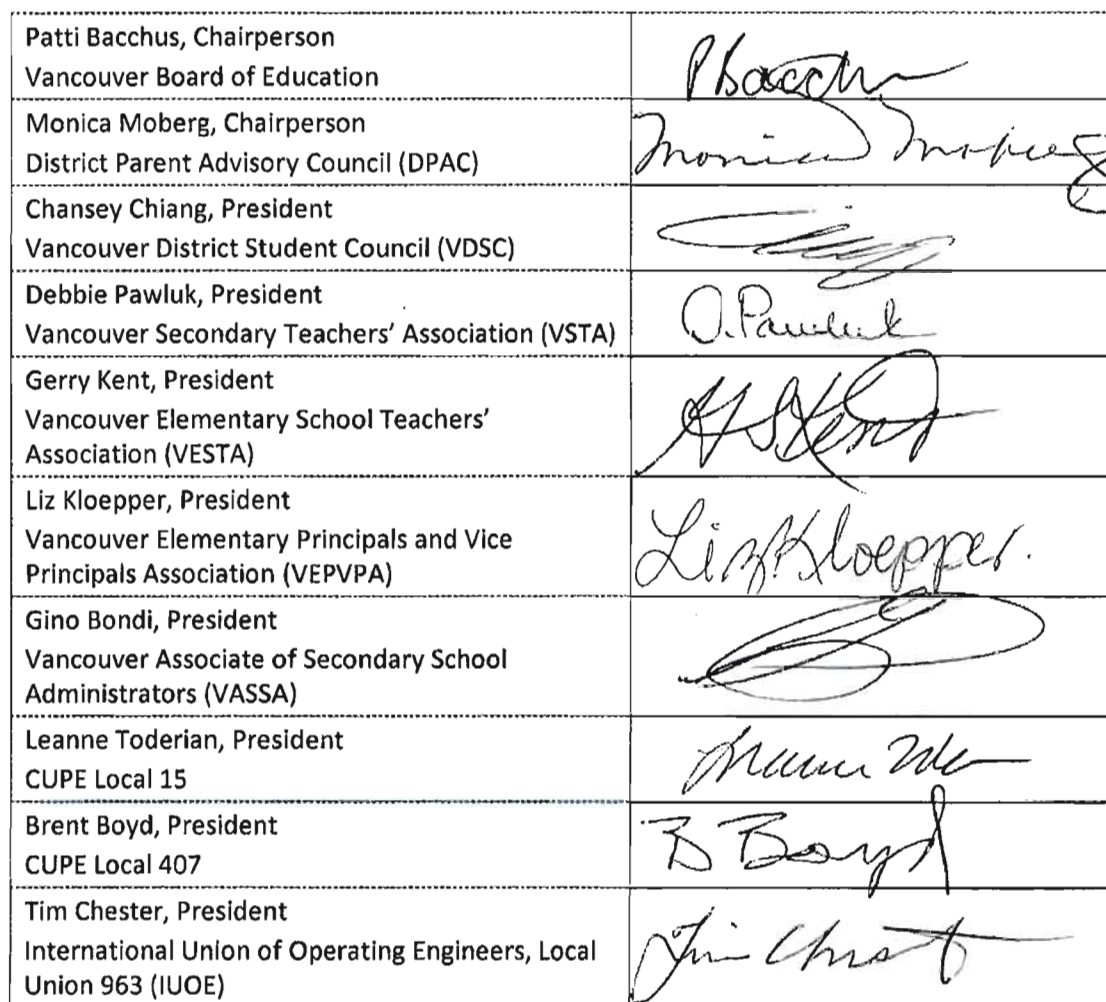 Patti Bacchus, Chairperson
Vancouver Board of Education
P Bacchus
Monica Moberg, Chairperson
District Parent Advisory Council (DPAC)
Monica Moberg
Chansey Chiang, President
Vancouver District Student Council (VDSC)
Debbie Pawluk, President
Vancouver Secondary Teachers' Association (VSTA)
D. Pawluk
Gerry Kent, President
Vancouver Elementary School Teachers'
Association (VESTA)
Liz Kloepper, President
Vancouver Elementary Principals and Vice
Principals Association (VEPVPA)
Liz Kloepper.
Gino Bondi, President
Vancouver Associate of Secondary School
Administrators (VASSA)
Leanne Toderian, President
CUPE Local 15
Brent Boyd, President
CUPE Local 407
B Boyd
Tim Chester, President
International Union of Operating Engineers, Local
Union 963 (IUOE)